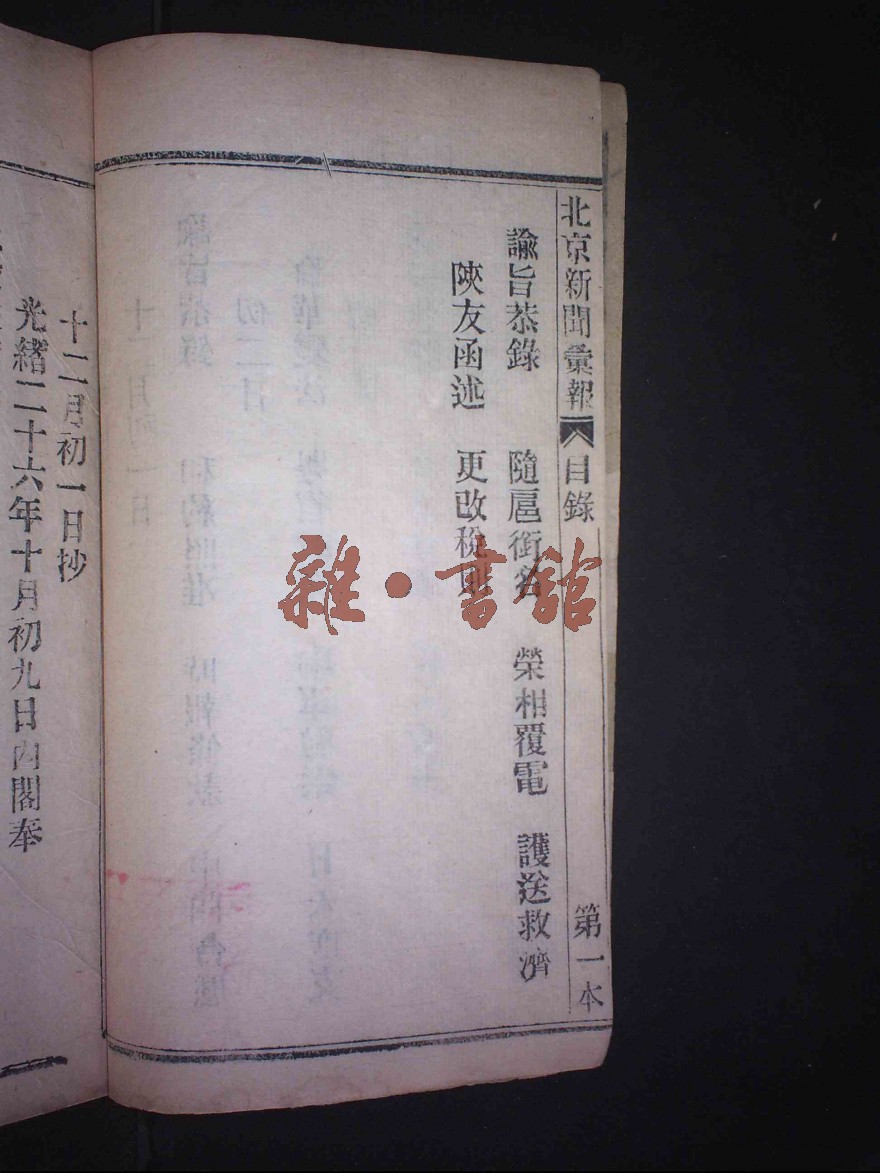 北京新聞彙報 目錄 第一本
諭旨恭錄 隨扈銜名 榮相覆電 護送救濟
陝友函述 更改稅則
十二月初一日抄
光緒二十六年十月初九日內閣奉
雜·書館